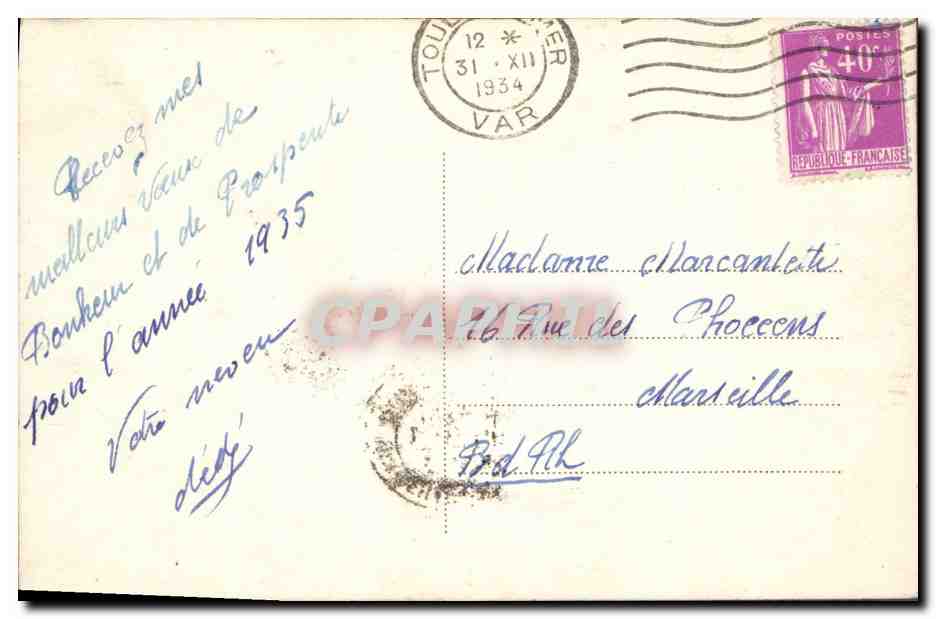 TOUL MER
12 *
31 · XII
1934
VAR
POSTES
40c
REPUBLIQUE·FRANCAISE
Recevez mes
meilleurs Vœux de
Bonheur et de Prosperite
pour l'année 1935
Votre neveu
dédé
Madame Marcantetti
16 Rue des Phoceens
Marseille
B d Rh
CPAPHIL